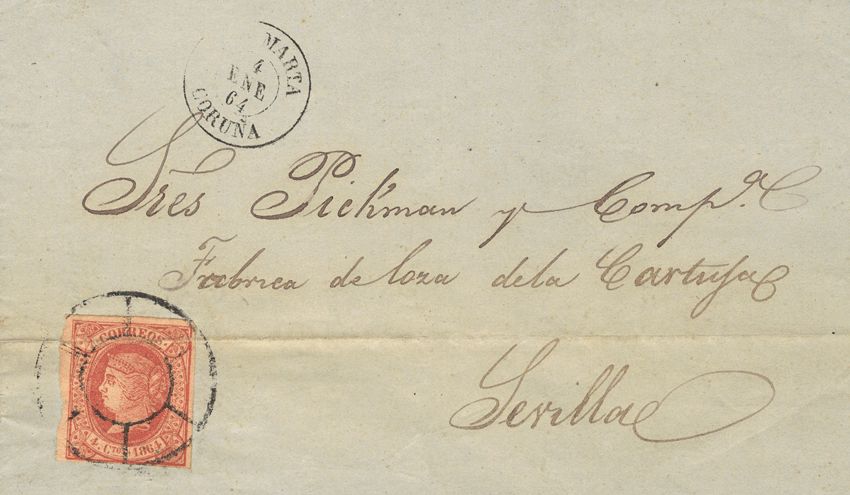 MARTA
4
ENE
64
CORUÑA
Sres Pickman y Comp.ª
Fabrica de loza dela Cartuja
Sevilla
CORREOS
4. Ctos 1864